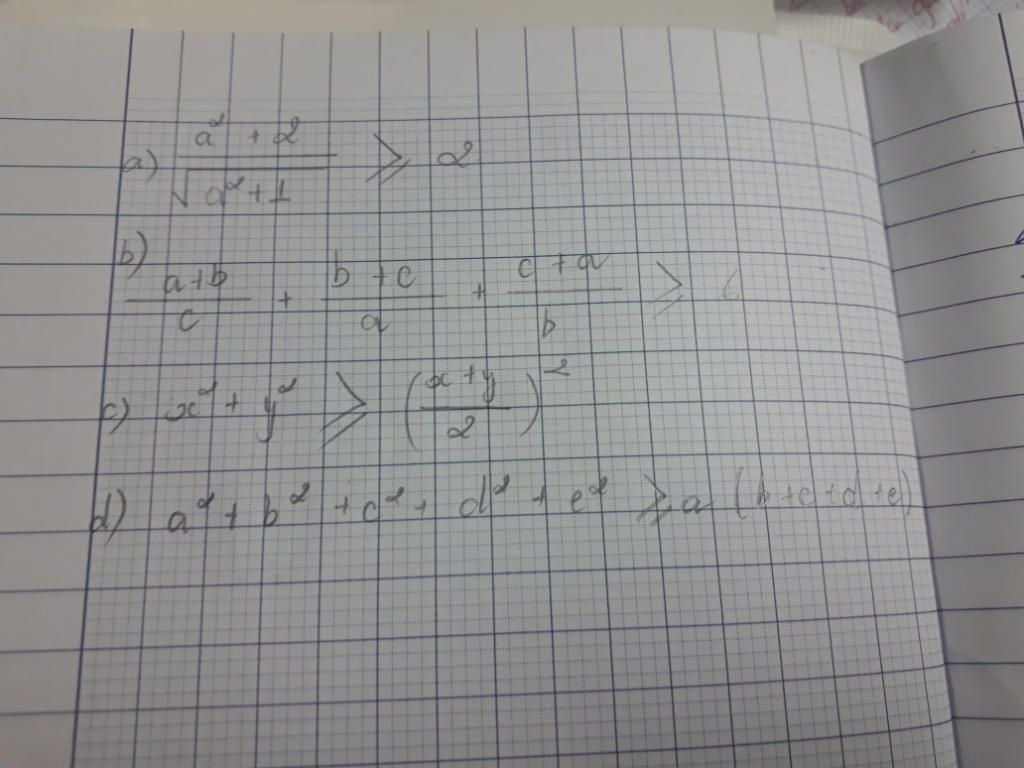 a) (a² + 2) / √(a² + 1) ⩾ 2
b) (a+b)/c + (b+c)/a + (c+a)/b ⩾
c) x² + y² ⩾ ((x+y)/2)²
d) a² + b² + c² + d² + e² ⩾ a (b+c+d+e)